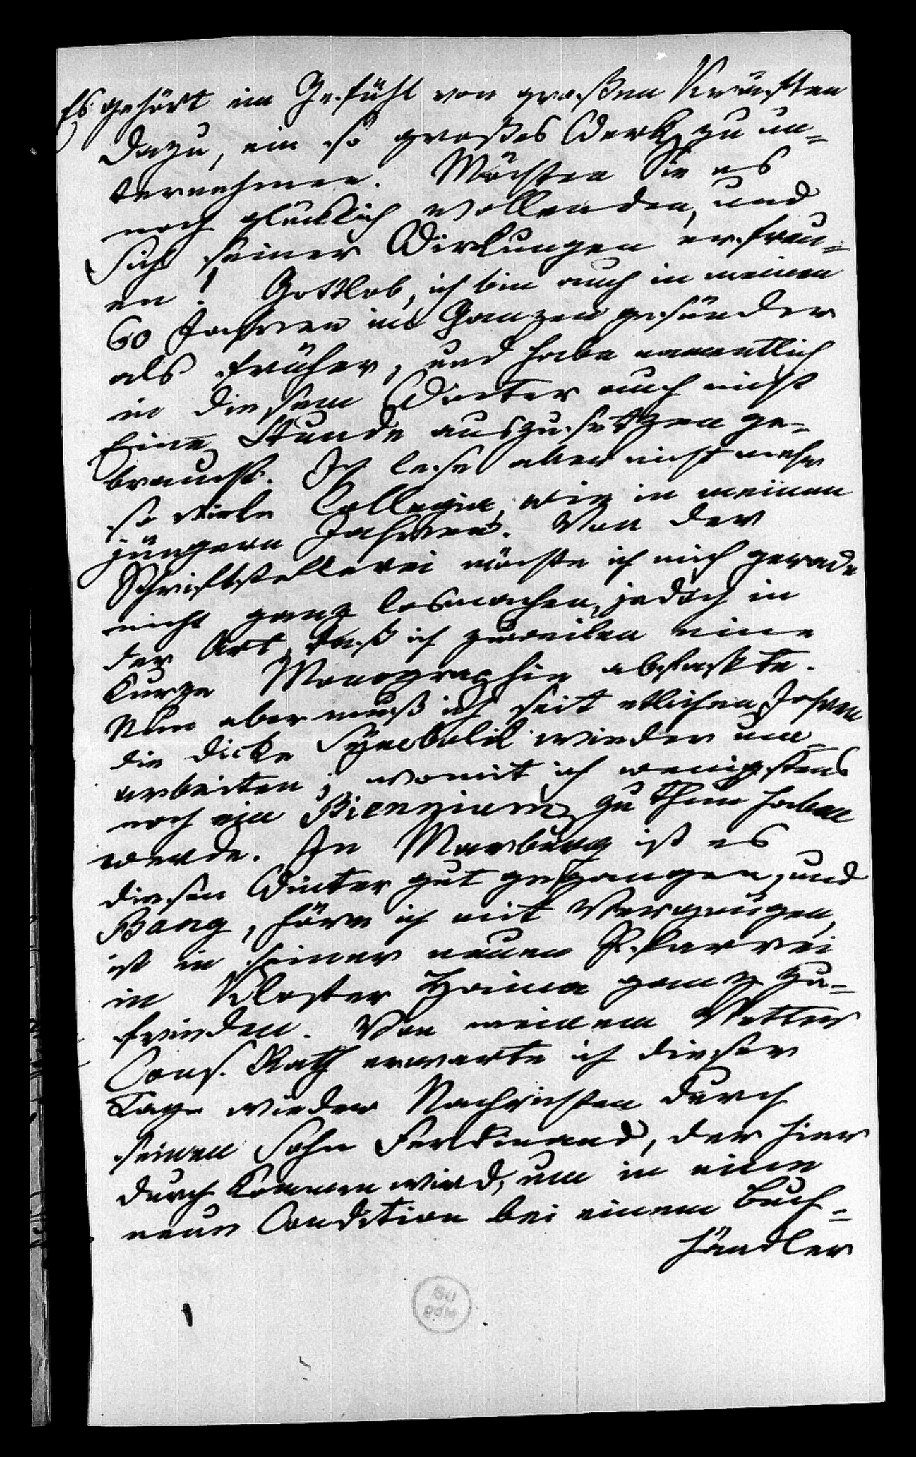 Es gehört ein Gefühl von großen Kräften
dazu, ein so großes Werk zu un-
ternehmen. Möchten Sie es
noch glücklich vollenden, und
sich seiner Wirkungen erfreu-
en! Gottlob, ich bin auch in meinen
60 Jahren im Ganzen gesünder
als früher, und habe namentlich
in diesem Winter auch nicht
Eine Stunde auszusetzen ge-
braucht. Ich lese aber nicht mehr
so viele Collegia, wie in meinen
jüngern Jahren. Von der
Schriftstellerei möchte ich mich gerade
nicht ganz losmachen, jedoch in
der Art, daß ich zuweilen eine
kurze Monographie abfaßte.
Nun aber muß ich seit etlichen Jahren
die dicke Symbolik wieder um-
arbeiten; womit ich wenigstens
noch ein Biennium zu thun haben
werde. In Marburg ist es
diesen Winter gut gegangen, und
Bang, höre ich mit Vergnügen,
ist in seiner neuen Pfarrei
in Kloster Haina ganz zu-
frieden. Von meinem Vetter
Cons. Rath erwarte ich dieser
Tage wieder Nachrichten durch
seinen Sohn Ferdinand, der hier
durch kommen wird, um in eine
neue Condition bei einem Buch-
händler